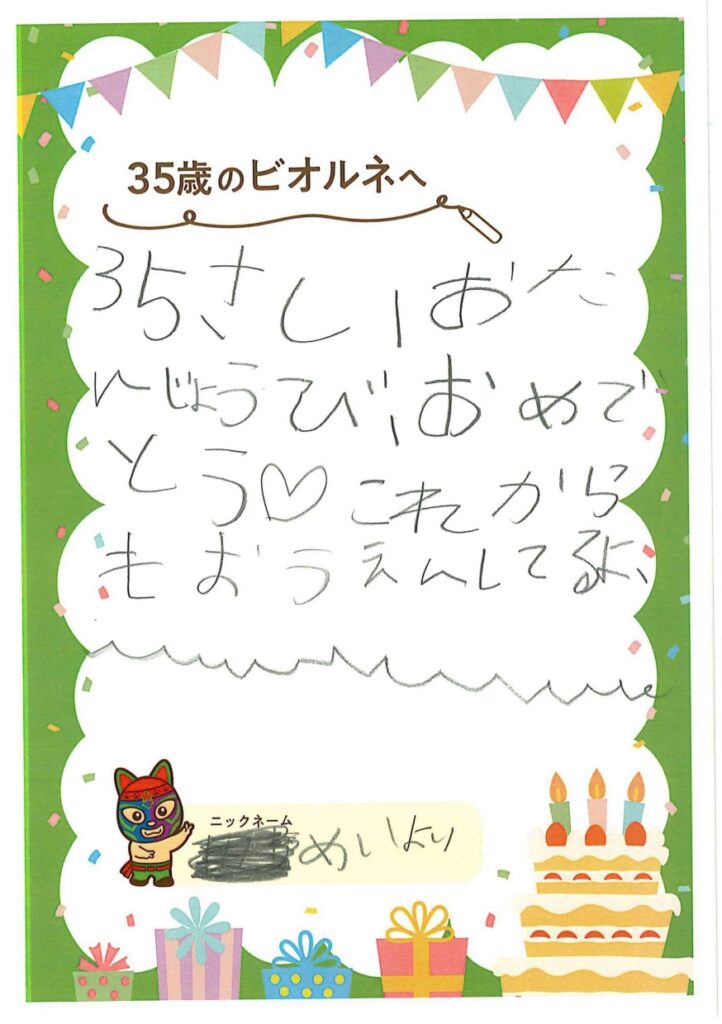 35歳のビオルネへ
35さしいおた
んじょうびいおめで
とう♡これから
もおうえんしてるよ、
ニックネーム
めいより